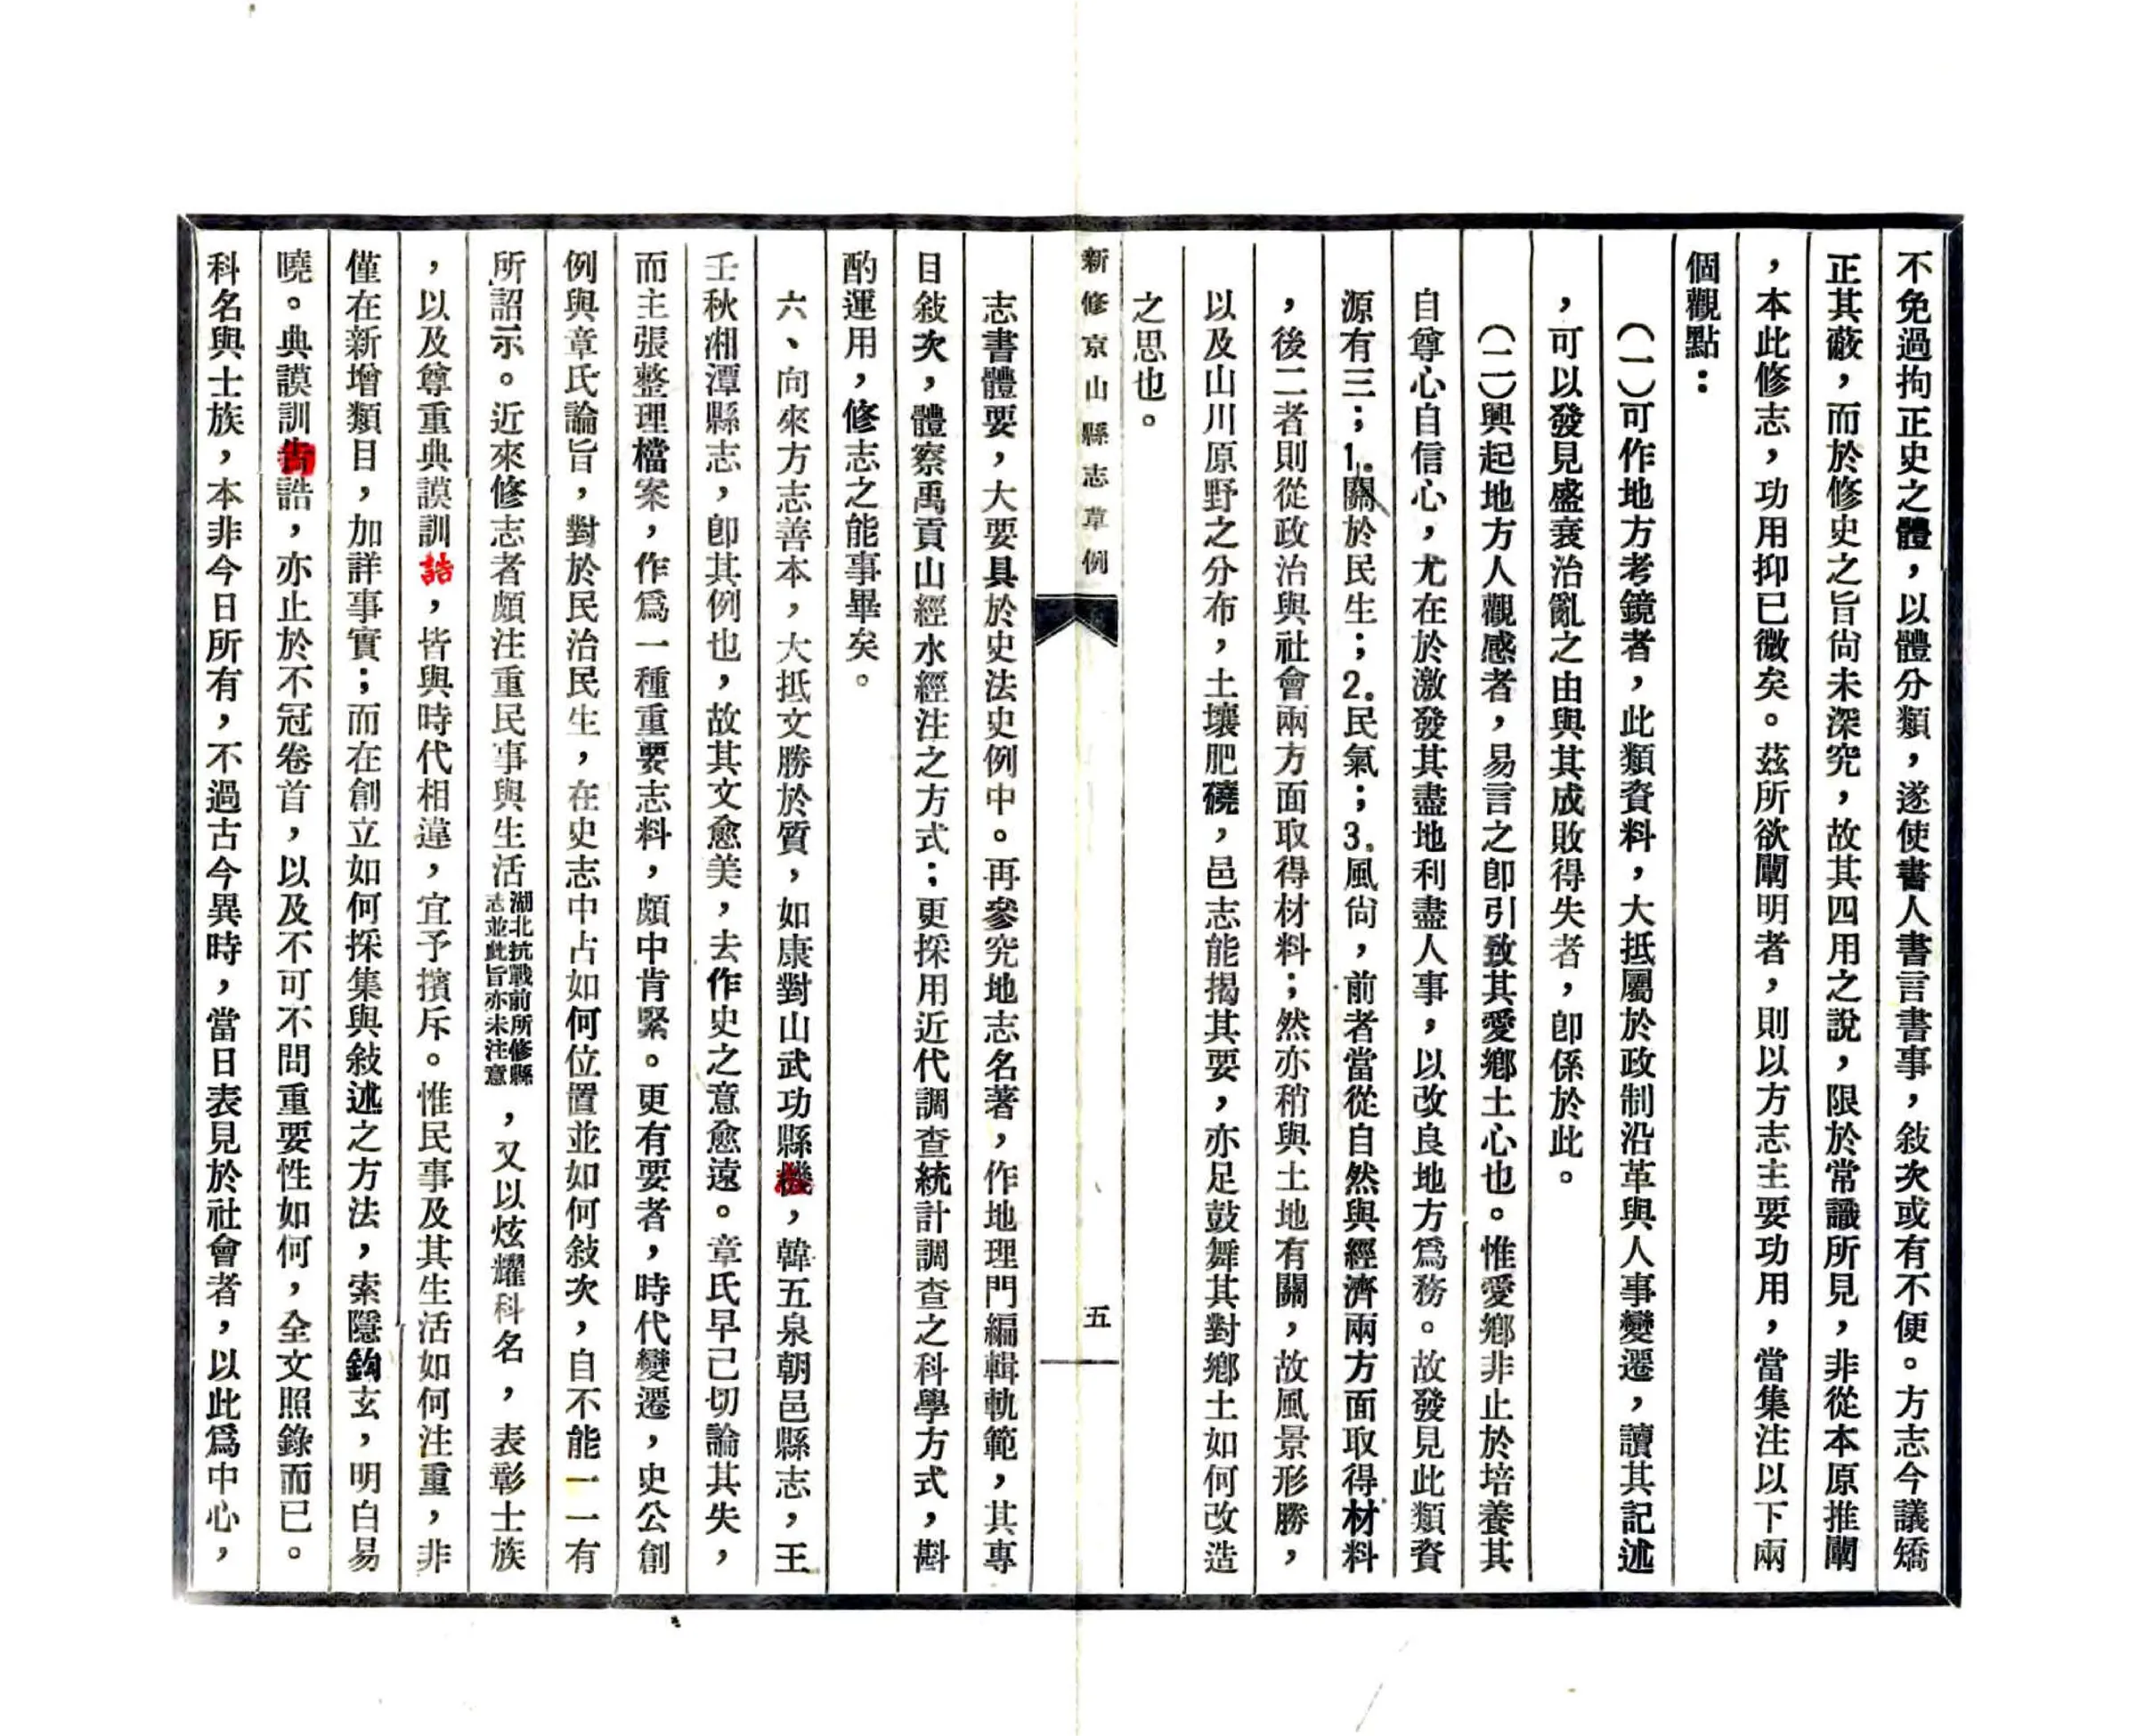 不免過拘正史之體，以體分類，遂使書人書言書事，敍次或有不便。方志今議矯
正其蔽，而於修史之旨尙未深究，故其四用之說，限於常識所見，非從本原推闡
，本此修志，功用抑已微矣。茲所欲闡明者，則以方志主要功用，當集注以下兩
個觀點：
（一）可作地方考鏡者，此類資料，大抵屬於政制沿革與人事變遷，讀其記述
，可以發見盛衰治亂之由與其成敗得失者，卽係於此。
（二）興起地方人觀感者，易言之卽引致其愛鄉土心也。惟愛鄉非止於培養其
自尊心自信心，尤在於激發其盡地利盡人事，以改良地方爲務。故發見此類資
源有三；1.關於民生；2.民氣；3.風尙，前者當從自然與經濟兩方面取得材料
，後二者則從政治與社會兩方面取得材料；然亦稍與土地有關，故風景形勝，
以及山川原野之分布，土壤肥磽，邑志能揭其要，亦足鼓舞其對鄉土如何改造
之思也。
新修京山縣志草例
五
志書體要，大要具於史法史例中。再參究地志名著，作地理門編輯軌範，其專
目敍次，體察禹貢山經水經注之方式；更採用近代調查統計調查之科學方式，斟
酌運用，修志之能事畢矣。
六、向來方志善本，大抵文勝於質，如康對山武功縣，韓五泉朝邑縣志，王
壬秋湘潭縣志，卽其例也，故其文愈美，去作史之意愈遠。章氏早已切論其失，
而主張整理檔案，作爲一種重要志料，頗中肯綮。更有要者，時代變遷，史公創
例與章氏論旨，對於民治民生，在史志中占如何位置並如何敍次，自不能一一有
所詔示。近來修志者頗注重民事與生活湖北抗戰前所修縣志並此旨亦未注意，又以炫耀科名，表彰士族
，以及尊重典謨訓誥，皆與時代相違，宜予擯斥。惟民事及其生活如何注重，非
僅在新增類目，加詳事實；而在創立如何採集與敍述之方法，索隱鈎玄，明白易
曉。典謨訓誥，亦止於不冠卷首，以及不可不問重要性如何，全文照錄而已。
科名與士族，本非今日所有，不過古今異時，當日表見於社會者，以此爲中心，